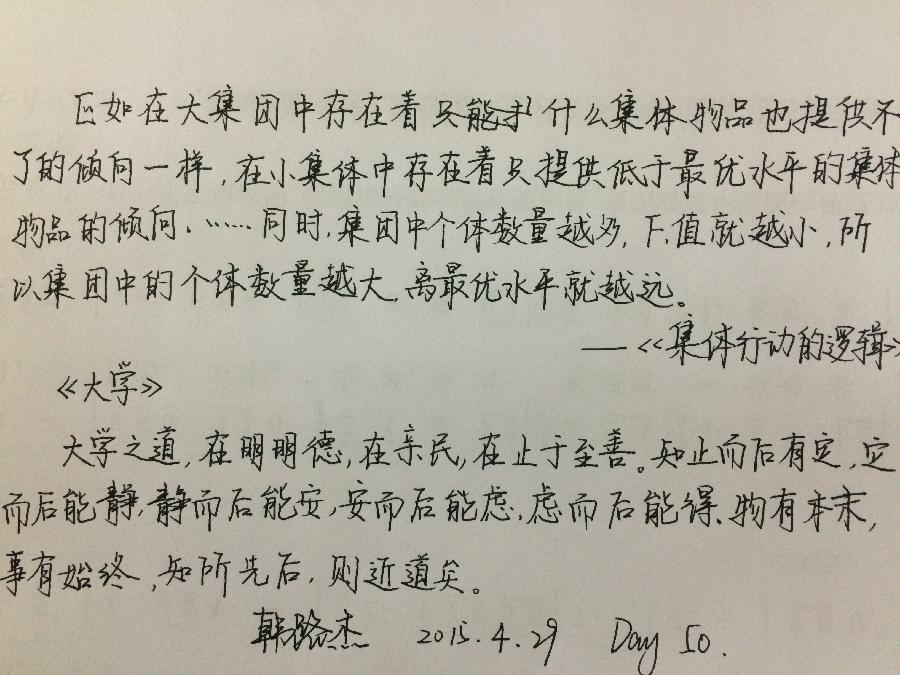 正如在大集团中存在着什么集体物品也提供不
了的倾向一样,在小集体中存在着只提供低于最优水平的集体
物品的倾向.……同时,集团中个体数量越多,Fi值就越小,所
以集团中的个体数量越大,离最优水平就越远。
——《集体行动的逻辑》
《大学》
大学之道,在明明德,在亲民,在止于至善。知止而后有定,定
而后能静,静而后能安,安而后能虑,虑而后能得.物有本末,
事有始终,知所先后,则近道矣。
韩路杰 2015.4.29 Day 50.